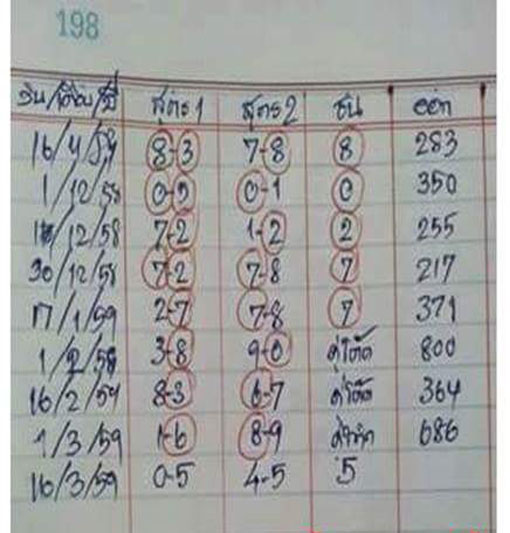 198
วัน/เดือน/ปี สูตร 1 สูตร 2 ชน ออก
16/4/59 8-3 7-8 8 283
1/12/58 0-5 0-1 0 350
16/12/58 7-2 1-2 2 255
30/12/58 7-2 7-8 7 217
17/1/59 2-7 7-8 7 371
1/2/59 3-8 9-0 คู่โต๊ด 800
16/2/59 8-3 6-7 คู่โต๊ด 364
1/3/59 1-6 8-9 686
16/3/59 0-5 4-5 5